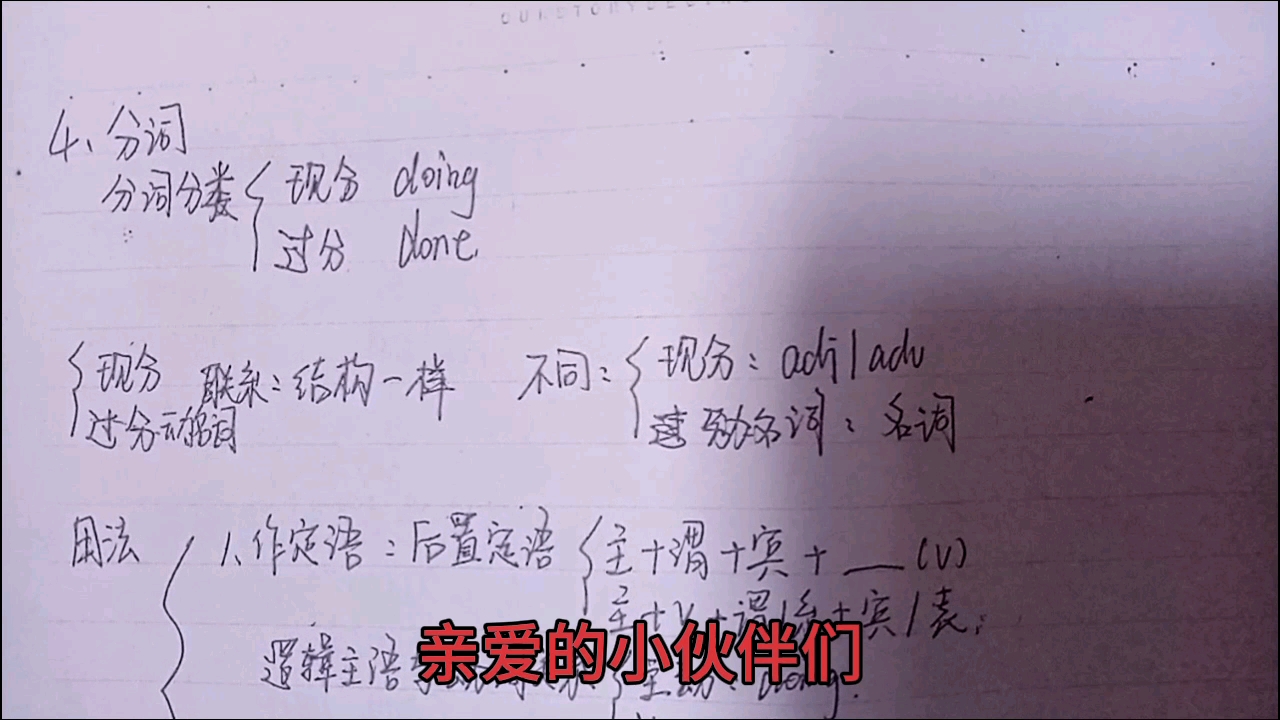 4、分词
分词分类 现分 doing
过分 done.
现分 联系：结构一样 不同： 现分：adj/adv
过分动名词 动名词：名词
用法 1、作定语：后置定语 主+谓+宾+__(v)
主+v+谓/系+宾/表.
逻辑主语
亲爱的小伙伴们